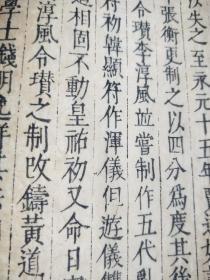 失之至永元十五年賈
張衡更制之以四分爲度其後
令瓚李淳風並嘗制作五代亂
符初韓顯符作渾儀但遊儀雙
道相固不動皇祐初又命日
淳風令瓚之制改鑄黃道
學士錢明逸詳其